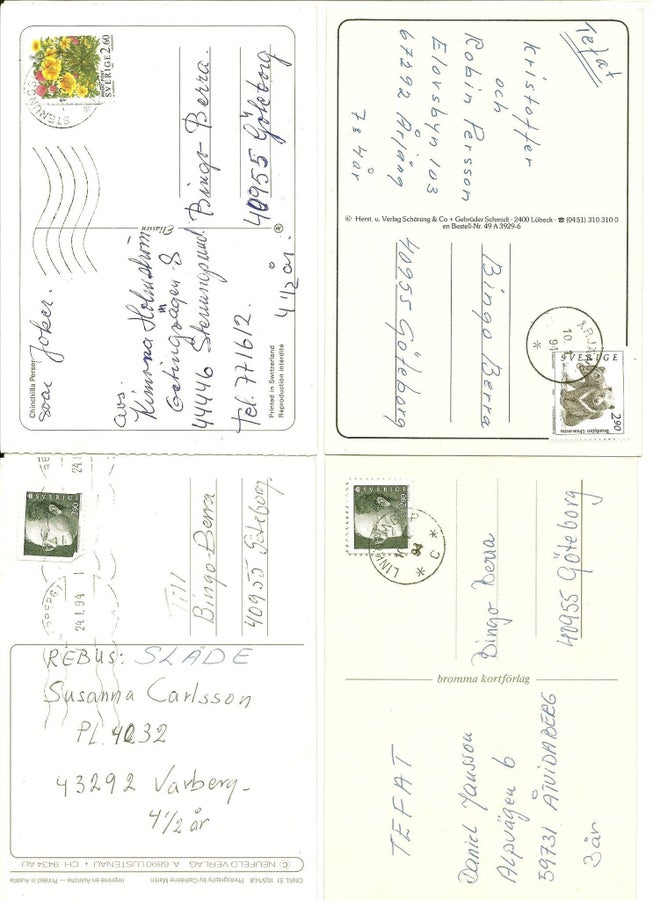 SVERIGE 2.60
STENUNGSUND
Bingo-Berra.
40955 Göteborg
Eliasson
Joker.
Holmström
Getingvägen 8
44446 Stenungsund.
Tel. 771612.
4 1/2 år.
Chinchilla Perser
Printed in Switzerland
Reproduction interdite
Tefat
Kristoffer
och
Robin Persson
Elovsbyn 103
67292 Årjäng
7 å 4 år
© Herst. u. Verlag Schöning & Co + Gebrüder Schmidt · 2400 Lübeck · ☎ (0451) 310 310 0
en Bestell-Nr. 49 A 3929-6
Bingo Berra
40955 Göteborg
ÅRJÄNG
10.
94
SVERIGE
2.90
SVERIGE
2.90
24.1.94
Till
Bingo-Berra
40955 Göteborg.
REBUS: SLÄDE
Susanna Carlsson
PL. 4032
43292 Varberg.
4 1/2 år
© NEUFELD VERLAG A-6890 LUSTENAU + CH 9434 AU
Photography by Cathérine Martin
Imprimé en Autriche — Printed in Austria
SVERIGE
2.90
94
Bingo Berra
40955 Göteborg
bromma kortförlag
TEFAT
Daniel Jansson
Alpvägen 6
59731 ÅTVIDABERG
3 år